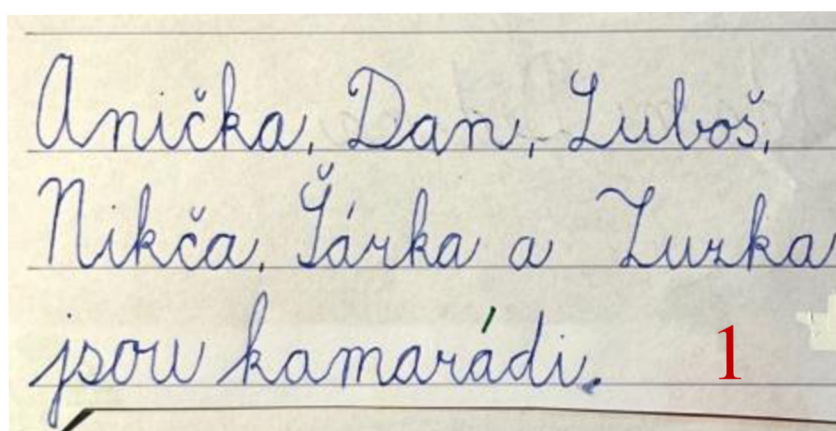 Anička, Dan, Luboš,
Nikča, Šárka a Zuzka
jsou kamarádi. 1